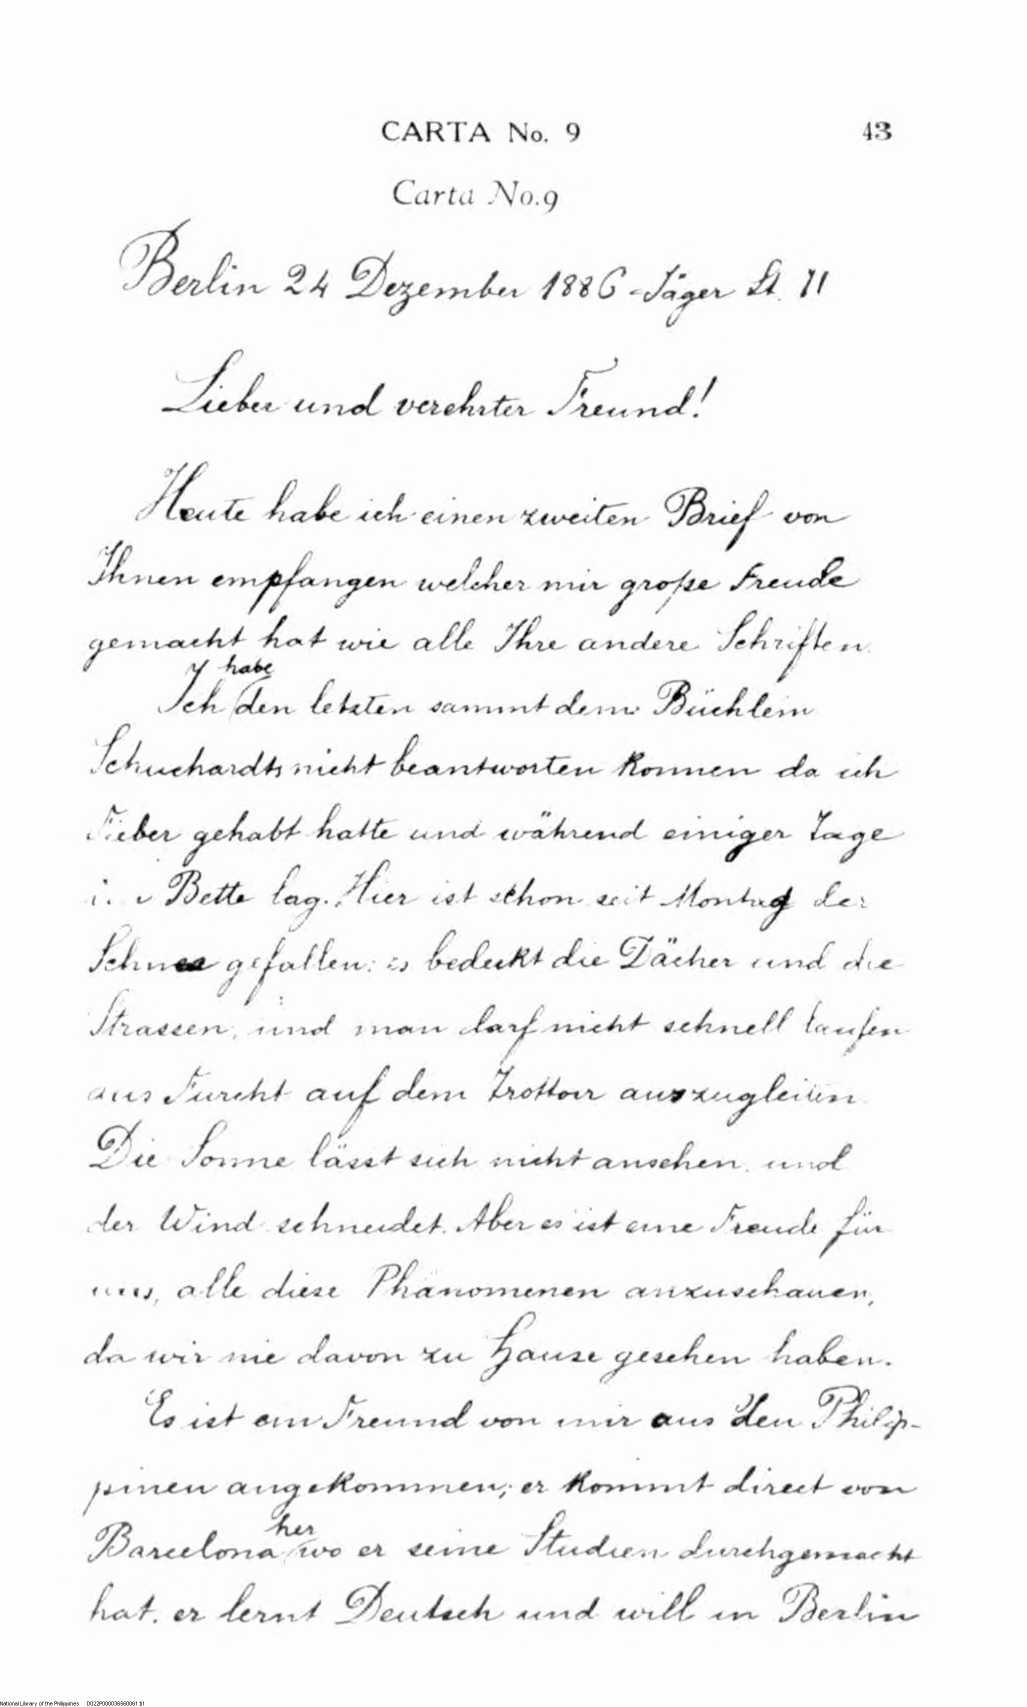 CARTA No. 9 43
Carta No.9
Berlin 24 Dezember 1886 - Jäger St. 71
Lieber und verehrter Freund!
Heute habe ich einen zweiten Brief von
Ihnen empfangen welcher mir große Freude
gemacht hat wie alle Ihre andere Schriften.
habe
Ich den letzten sammt dem Büchlein
Schuchardts nicht beantworten konnen da ich
Fieber gehabt hatte und während einiger Tage
Bette lag. Hier ist schon seit Montag der
Schnee gefallen: es bedeckt die Dächer und die
Strassen, und man darf nicht schnell laufen
aus Furcht auf dem Trottoir auszugleiten.
Die Sonne lässt sich nicht ansehen, und
der Wind schneidet. Aber es ist eine Freude für
uns, alle diese Phänomenen anzuschauen,
da wir nie davon zu Hause gesehen haben.
Es ist ein Freund von mir aus den Philip-
pinen angekommen; er kommt direct von
her
Barcelona wo er seine Studien durchgemacht
hat. er lernt Deutsch und will in Berlin
National Library of the Philippines